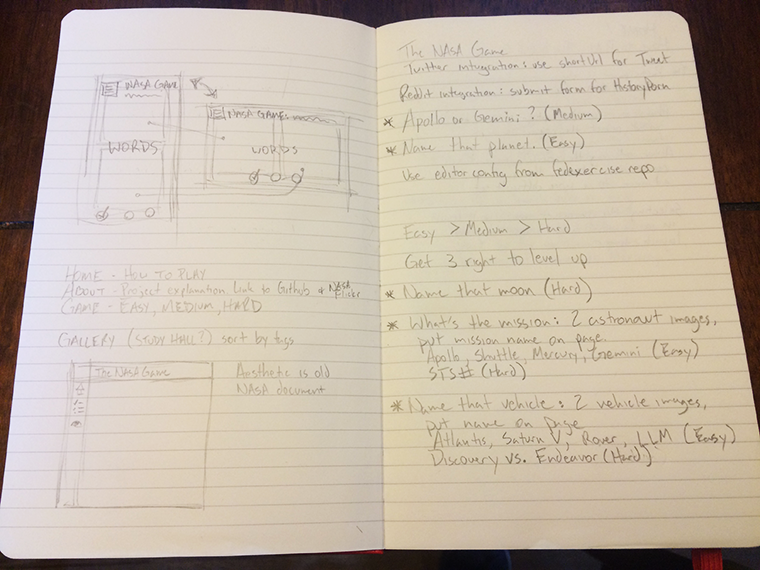 NASA GAME
WORDS
NASA GAMES
WORDS
HOME - HOW TO PLAY
ABOUT - Project explanation Link to Github & NASA Flickr
GAME - EASY, MEDIUM, HARD
GALLERY (STUDY HALL?) sort by tags
The NASA Game
Aesthetic is old
NASA document
The NASA Game
Twitter integration: use shortUrl for Tweet
Reddit integration: submit form for HistoryPorn
* Apollo or Gemini? (Medium)
* Name that planet. (Easy)
Use editor config from fedexercise repo
Easy > Medium > Hard
Get 3 right to level up
* Name that moon (Hard)
* What's the mission: 2 astronaut images,
put mission name on page.
Apollo, Shuttle, Mercury, Gemini (Easy)
STS# (Hard)
* Name that vehicle: 2 vehicle images,
put name on page
Atlantis, Saturn V, Rover, LLM (Easy)
Discovery vs. Endeavor (Hard)